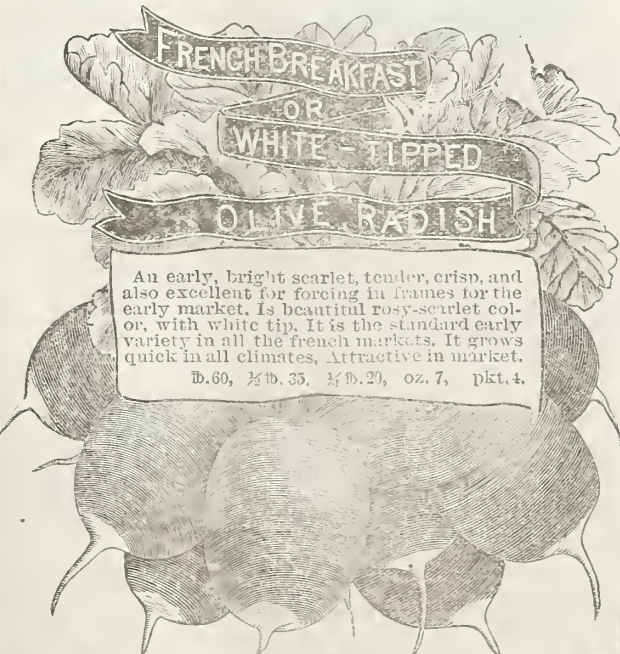 FRENCH BREAKFAST
OR
WHITE-TIPPED
OLIVE RADISH
An early, bright scarlet, tender, crisp, and
also excellent for forcing in frames for the
early market. Is beautiful rosy-scarlet col-
or, with white tip. It is the standard early
variety in all the french markets. It grows
quick in all climates. Attractive in market.
lb.60, ½ lb. 35, ¼ lb.20, oz. 7, pkt. 4.